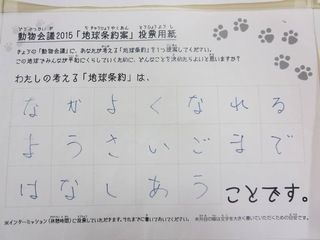 動物会議2015「地球条約案」投票用紙
きょうの「動物会議」に、あなたが考える「地球条約」を1つ提案してください。
この地球でみんなが平和にくらしていくために、どんなことを決めたらよいと思いますか?
わたしの考える「地球条約」は、
なかよくなれる
ようさいごまで
はなしあう ことです。
※インターミッション(休憩時間)に投票していただきます。それまでに書いておいてください。